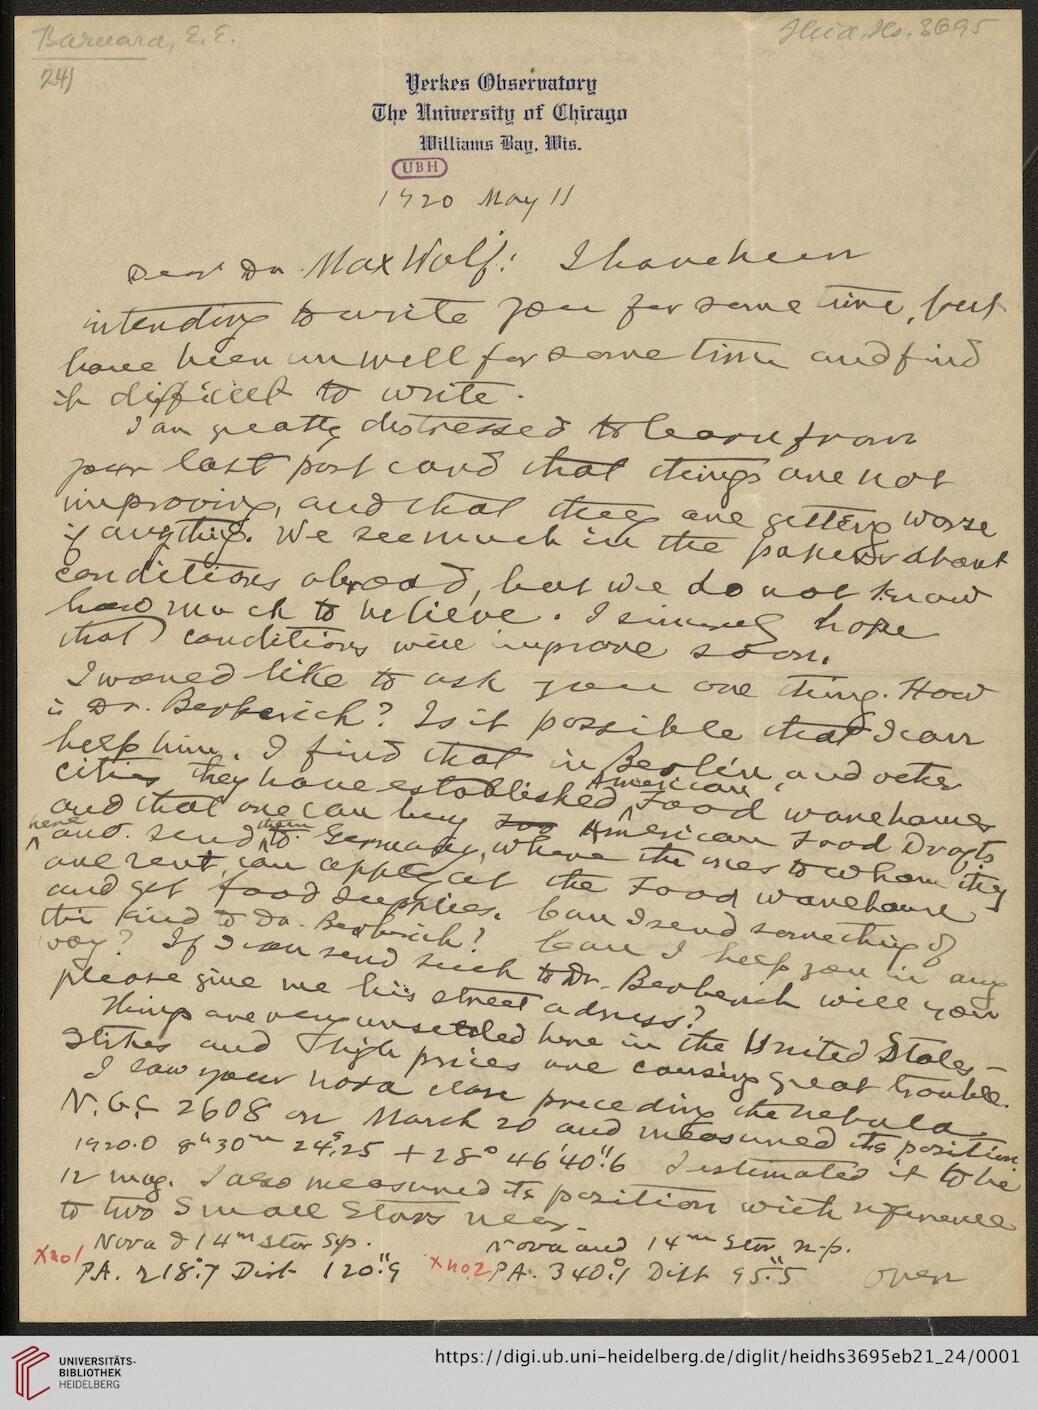 Barnard, E. E.
Heid. Hs. 3695
24)
Yerkes Observatory
The University of Chicago
Williams Bay, Wis.
UBH
1920 May 11
Dear Dr. Max Wolf: I have been
intending to write you for some time, but
have been unwell for some time and find
it difficult to write.
I am greatly distressed to learn from
your last post card that things are not
improving, and that they are getting worse
if anything. We see much in the papers about
conditions abroad, but we do not know
how much to believe. I sincerely hope
that conditions will improve soon.
I would like to ask you one thing. How
is Dr. Berberich? Is it possible that I can
help him. I find that in Berlin and other
cities they have established American Food warehouses
and that one can buy American Food Drafts
here and send them to Germany, where the ones to whom they
are sent, can apply at the Food warehouse
and get food supplies. Can I send something of
this kind to Dr. Berberich? Can I help you in any
way? If I can send such to Dr. Berberich will you
please give me his street adress?
Things are very unsettled here in the United States —
Strikes and high prices are causing great trouble.
I saw your nova close preceding the nebula
N.G.C 2608 on March 20 and measured its position.
1920.0 8h 30m 24s.25 + 28° 46' 40".6 I estimated it to be
12 mag. I also measured its position with reference
to two small stars near.
Nova & 14m star Sp.
Nova and 14m star n-p.
x no 1
PA. 218°.7 Dist 120".9
x no. 2
PA. 340°.1 Dist 95".5
over
UNIVERSITÄTS-
BIBLIOTHEK
HEIDELBERG
https://digi.ub.uni-heidelberg.de/diglit/heidhs3695eb21_24/0001